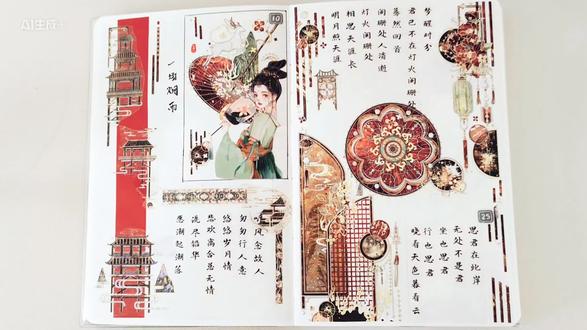 AI生成
10
一场烟雨
风念故人
匆匆行人意
悠悠岁月情
悲欢离合总无情
洗尽铅华
愿潮起潮落
梦醒时分
君已不在灯火阑珊处
蓦然回首
阑珊处人清
灯火阑珊处
相思天涯长
明月照天涯
25
思君在北岸
无处不是君
坐也思君
行也思君
晓看天色暮看云